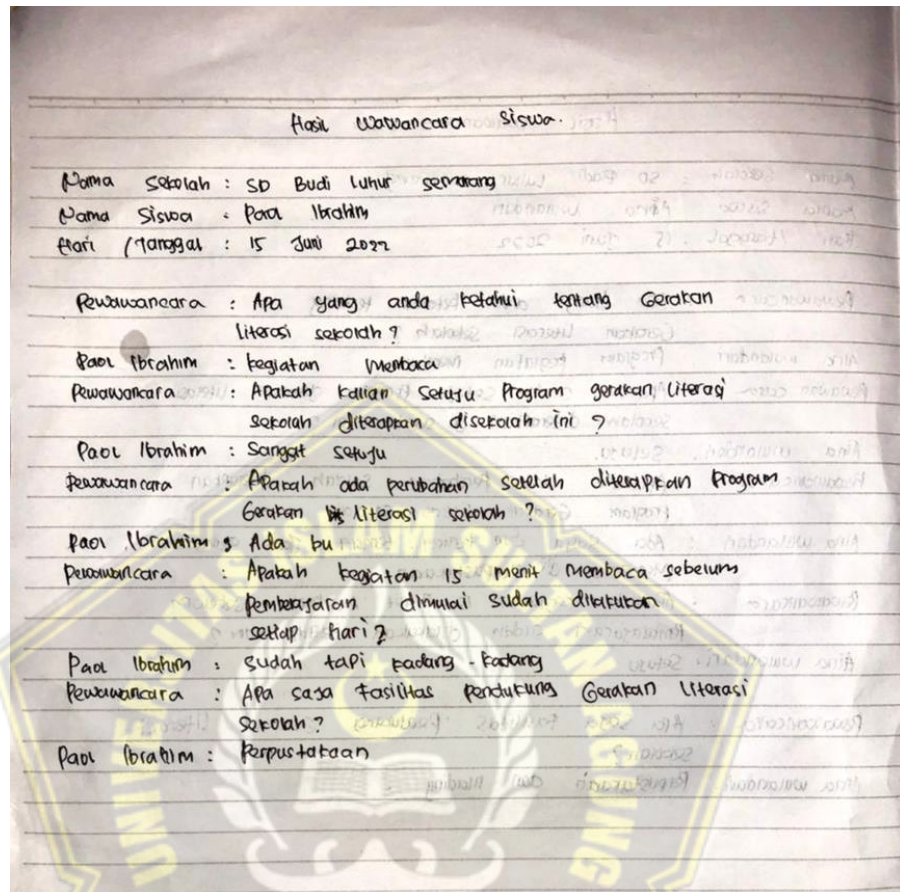 Hasil Wawancara Siswa.
Nama Sekolah : SD Budi Luhur Semarang
Nama Siswa : Paol Ibrahim
Hari / Tanggal : 15 Juni 2022
Pewawancara : Apa yang anda ketahui tentang Gerakan
literasi sekolah ?
Paol Ibrahim : kegiatan Membaca
Pewawancara : Apakah kalian Setuju Program gerakan literasi
sekolah diterapkan disekolah ini ?
Paol Ibrahim : Sanggat setuju
Pewawancara : Apakah ada perubahan setelah diterapkan Program
Gerakan literasi sekolah ?
Paol Ibrahim : Ada bu
Pewawancara : Apakah kegiatan 15 menit Membaca sebelum
pembelajaran dimulai sudah dilakukan
setiap hari ?
Paol Ibrahim : Sudah tapi kadang - kadang
Pewawancara : Apa saja Fasilitas pendukung Gerakan Literasi
Sekolah ?
Paol Ibrahim : Perpustakaan
UNIVERSITAS ISLAM SULTAN AGUNG